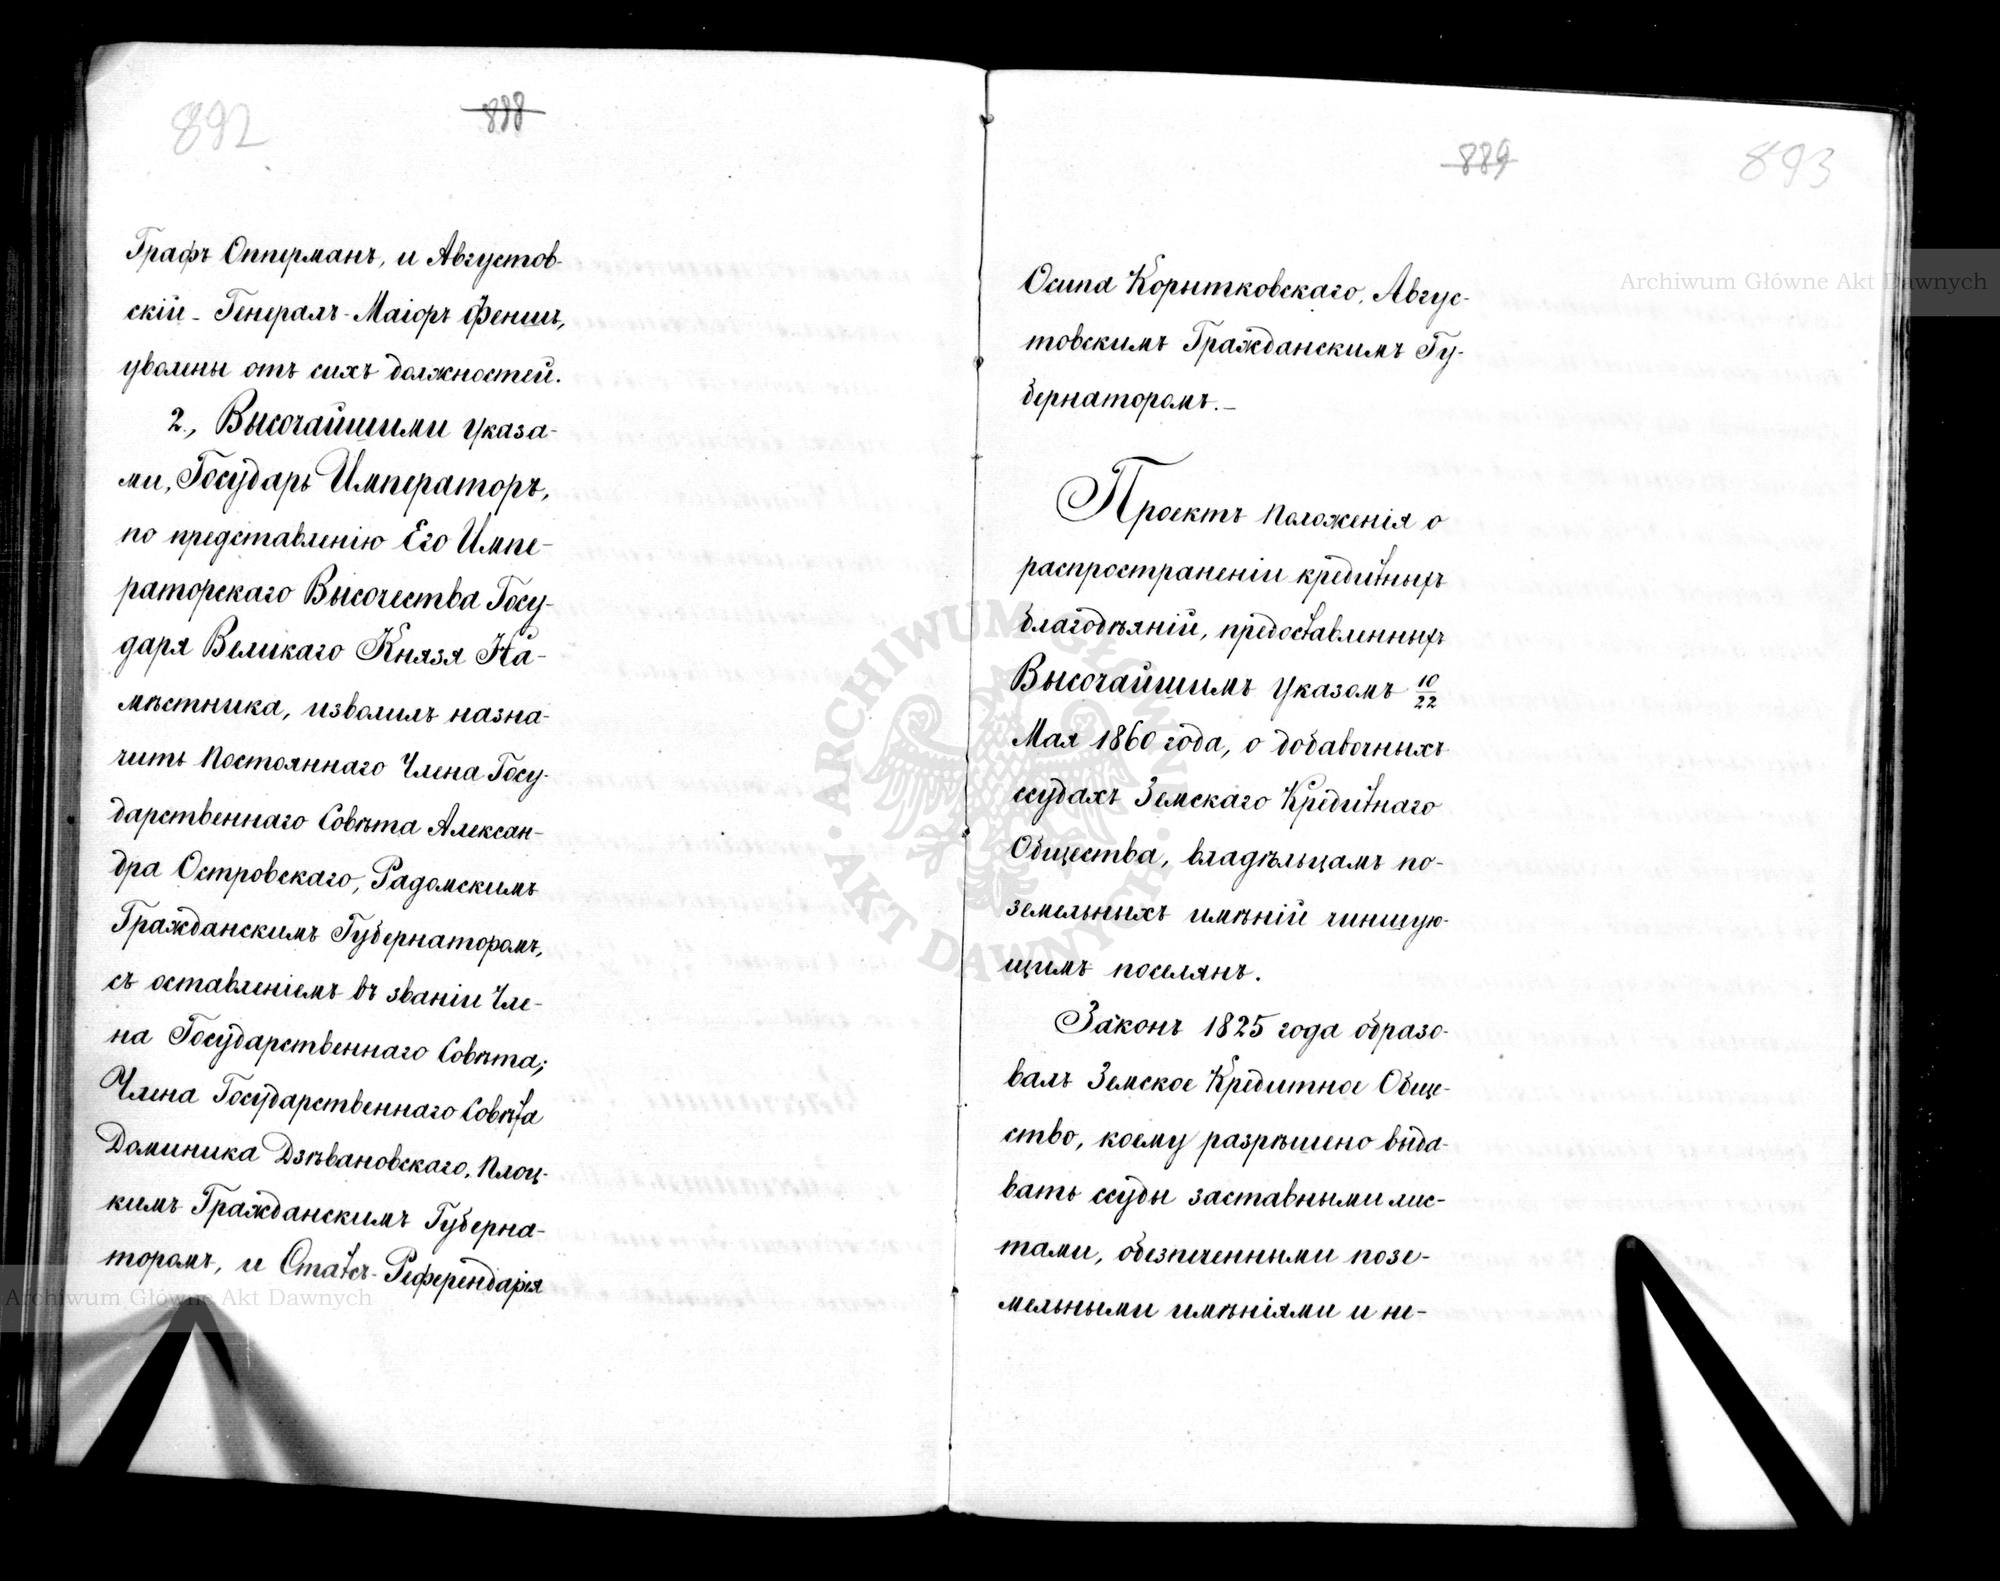 892
888
Графъ Опперманъ, и Августов-
скій - Генералъ-Маіоръ Феншъ,
уволены отъ сихъ должностей.
2., Высочайшими Указа-
ми, Государь Императоръ,
по представленію Его Импе-
раторскаго Высочества Госу-
даря Великаго Князя На-
мѣстника, изволилъ назна-
чить Постояннаго Члена Госу-
дарственнаго Совѣта Алексан-
дра Островскаго, Радомскимъ
Гражданскимъ Губернаторомъ,
съ оставленіемъ въ званіи Чле-
на Государственнаго Совѣта;
Члена Государственнаго Совѣта
Доминика Дзѣвановскаго, Плоц-
кимъ Гражданскимъ Губерна-
торомъ, и Статсъ-Референдарія
889
893
Осипа Корытковскаго, Авгус-
товскимъ Гражданскимъ Гу-
бернаторомъ.-
Проектъ Положенія о
распространеніи кредитныхъ
благодѣяній, предоставленныхъ
Высочайшимъ Указомъ 10/22
Мая 1860 года, о добавочныхъ
ссудахъ Земскаго Кредитнаго
Общества, владѣльцамъ по-
земельныхъ имѣній чиншую-
щимъ поселянъ.
Законъ 1825 года образо-
валъ Земское Кредитное Обще-
ство, коему разрѣшено выда-
вать ссуды заставными лис-
тами, обезпеченными позе-
мельными имѣніями и не-
Archiwum Główne Akt Dawnych
Archiwum Główne Akt Dawnych
· ARCHIWUM GŁÓWNE · AKT DAWNYCH ·